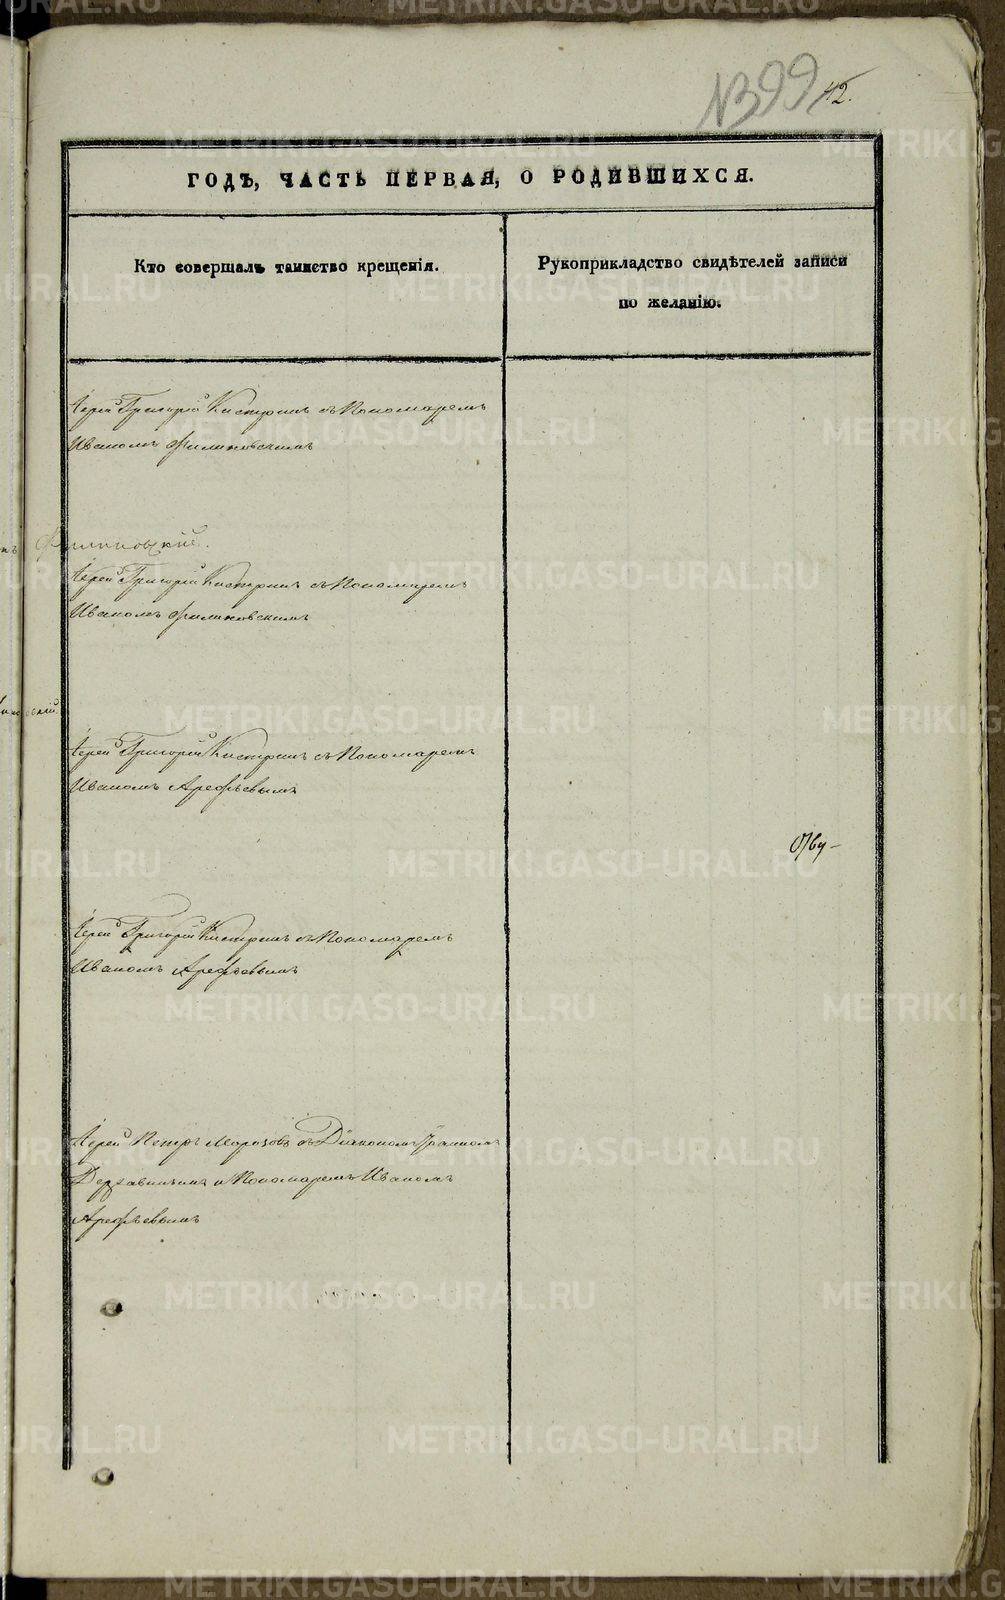 №399 42.
ГОДЪ, ЧАСТЬ ПЕРВАЯ, О РОДИВШИХСЯ.
Кто совершалъ таинство крещенія.
Рукоприкладство свидѣтелей записи
по желанію.
Іерей Григорій Кистринъ съ Пономаремъ
Иваномъ Филиповскимъ
Филиповскій.
Іерей Григорій Кистринъ съ Пономаремъ
Иваномъ Филиповскимъ
Іерей Григорій Кистринъ съ Пономаремъ
Иваномъ Арефьевымъ
Іерей Григорій Кистринъ съ Пономаремъ
Иваномъ Арефьевымъ
Іерей Петръ Морозовъ съ Діакономъ Іоанномъ
Державинымъ и Пономаремъ Иваномъ
Арефьевымъ
METRIKI.GASO-URAL.RU